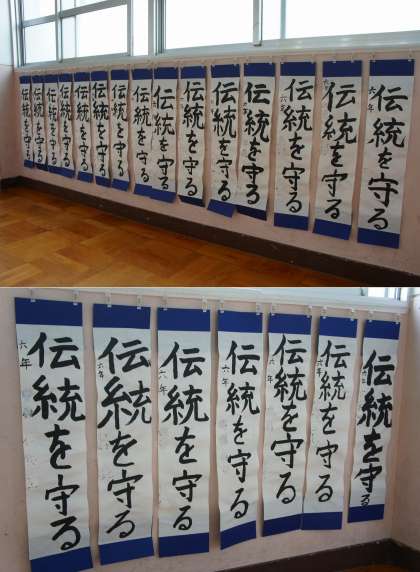 伝統を守る
伝統を守る
伝統を守る
伝統を守る
伝統を守る
伝統を守る
伝統を守る
伝統を守る
伝統を守る
伝統を守る
伝統を守る
伝統を守る
伝統を守る
伝統を守る
六年
伝統を守る
六年
伝統を守る
六年
伝統を守る
六年
伝統を守る
六年
伝統を守る
六年
伝統を守る
六年
伝統を守る
六年
伝統を守る
六年